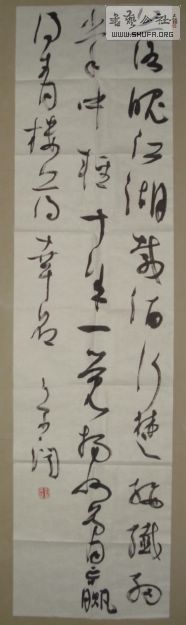 书艺公社
WWW.SHUFA.ORG
落魄江湖載酒行楚腰纖細
掌中輕十年一覺揚州夢贏
得青樓薄幸名